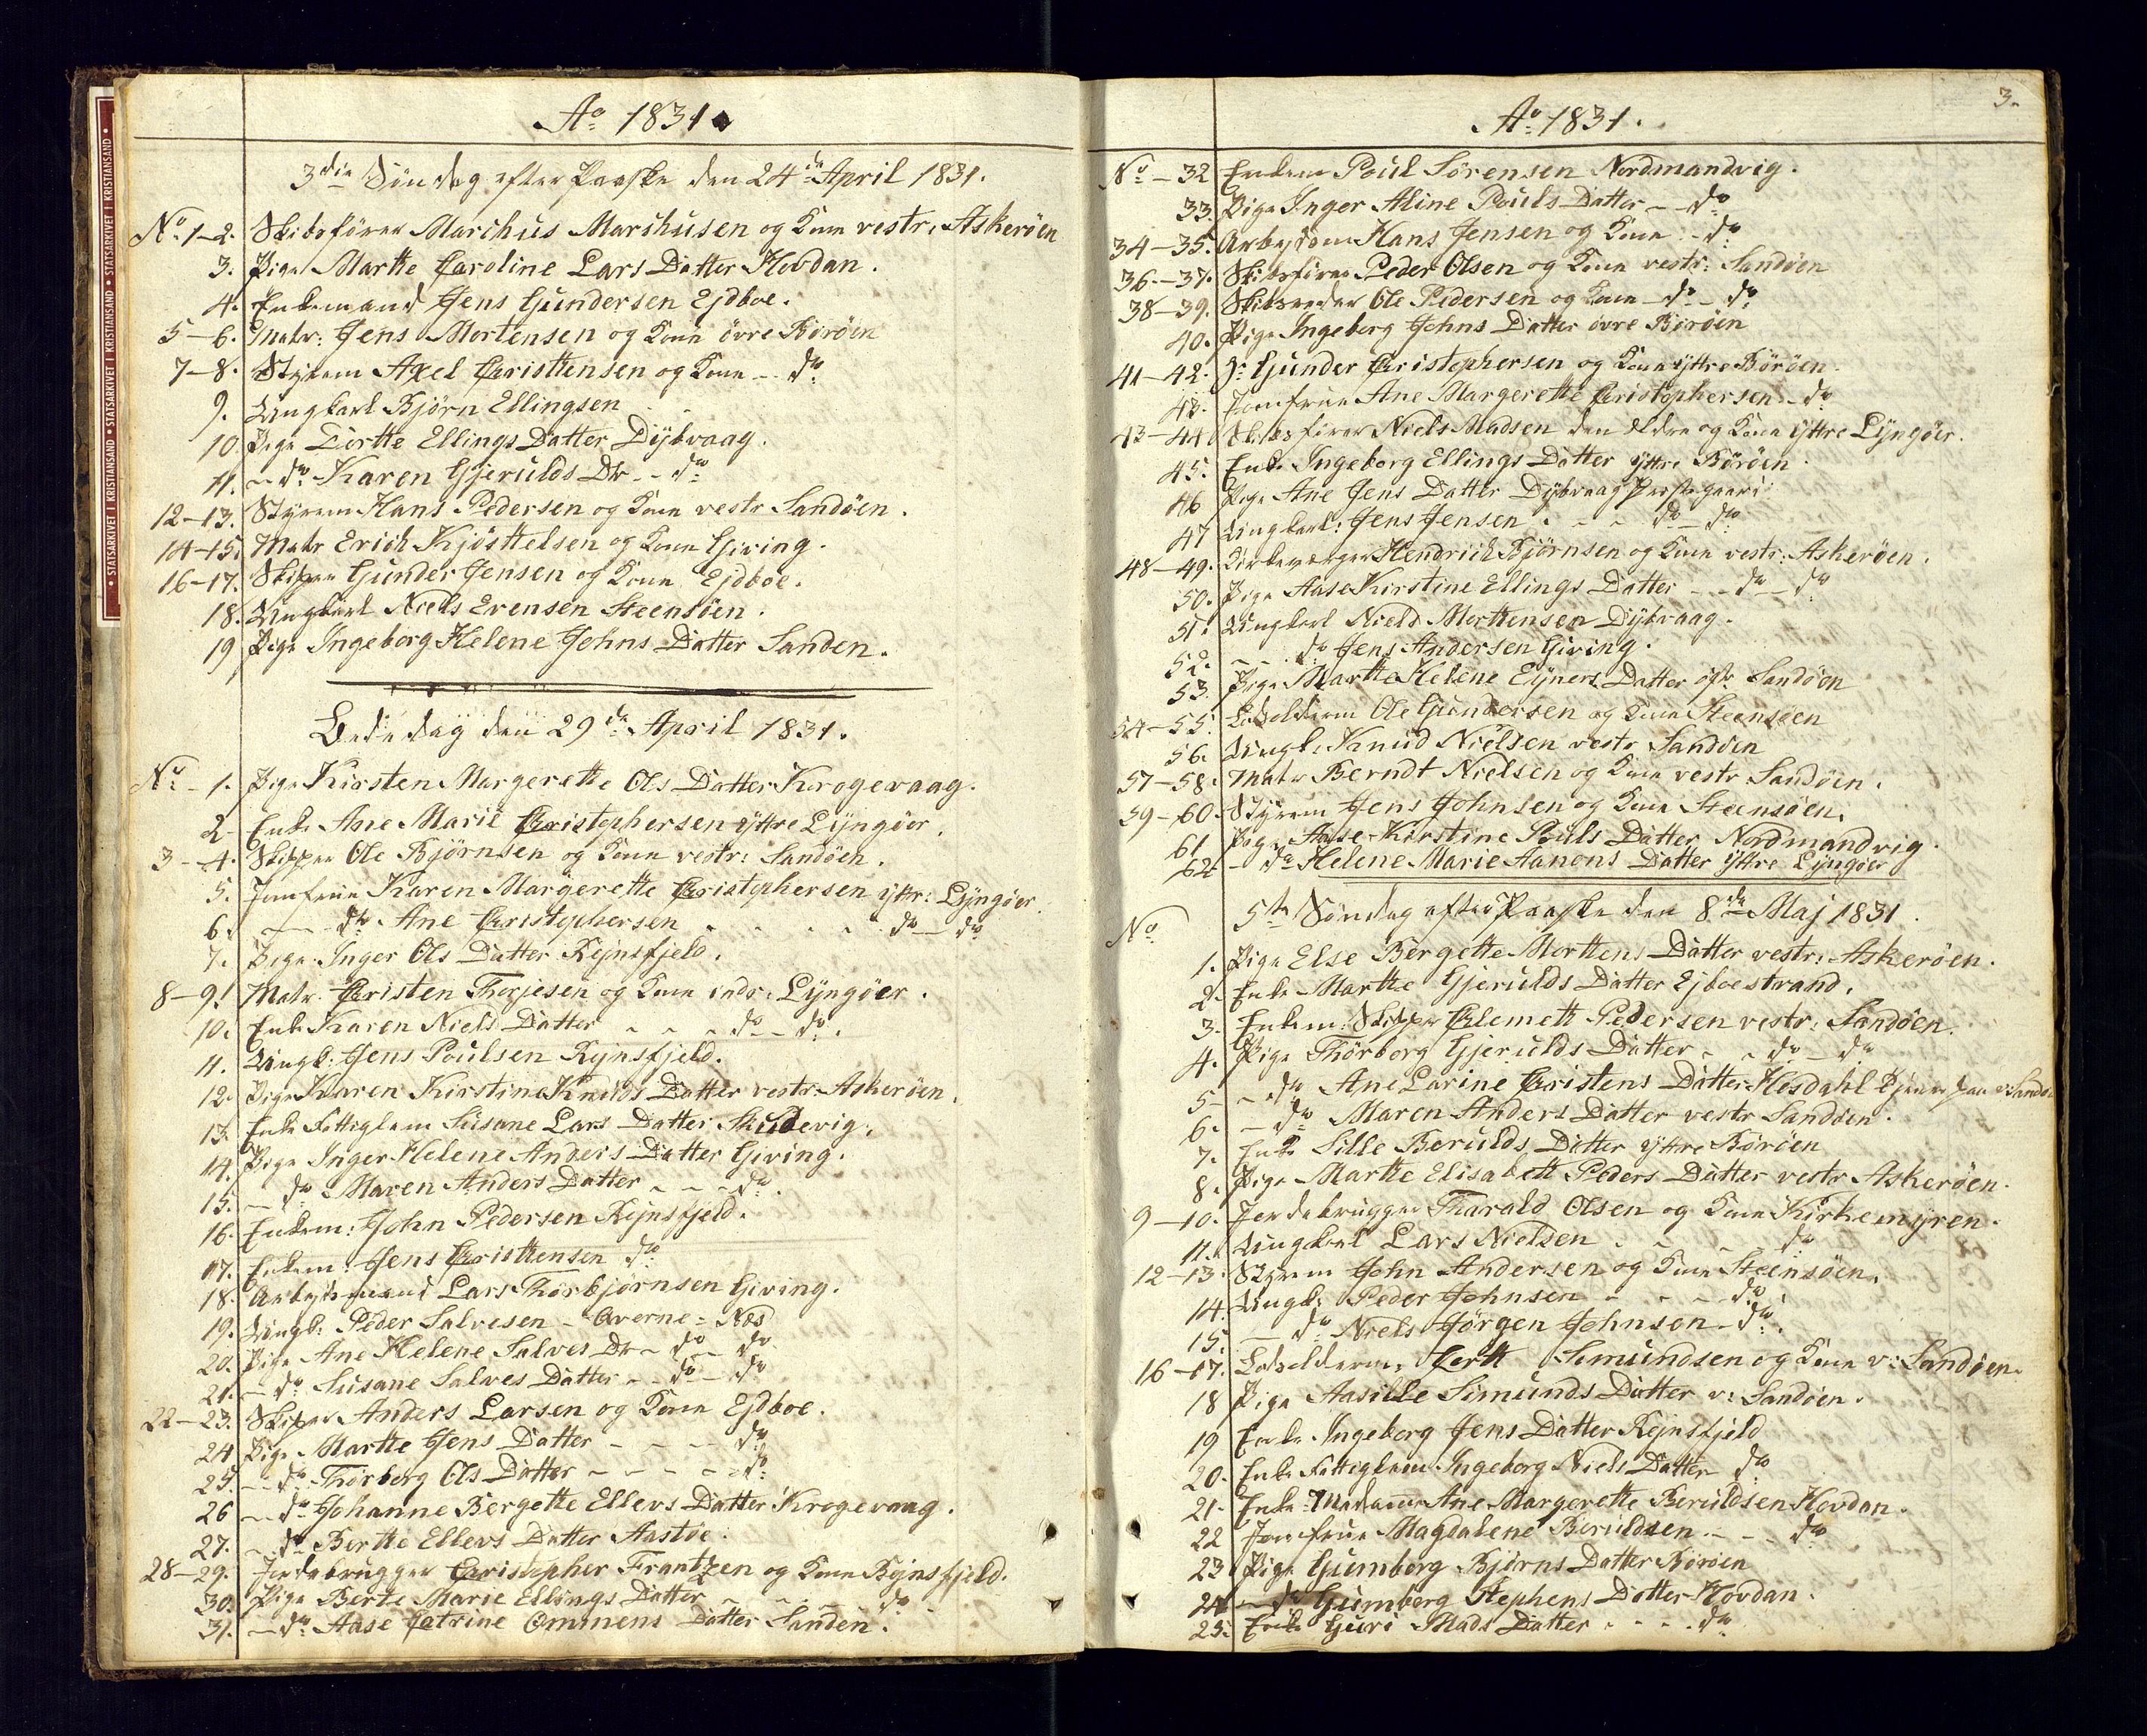 Ao 1831.
3die Söndag efter Paaske den 24de April 1831.
No 1-2. Skibsfören Marihus Marihusen og Kone vestr: Askeröen
3. Pige Marthe Caroline Lars Datter Hovdan.
4. Enkemand Jens Gundersen Ejdboe.
5-6. Matr: Jens Mortensen og Kone övre Böröen
7-8. Styrem Axel Christensen og Kone - do
9. Ungkarl Björn Ellingsen
10. Pige Dorthe Ellings Datter Dijbvaag.
11. - do Karen Gjerulds Dtr - do
12-13. Styrem Hans Pedersen og Kone vestr Sandöen.
14-15. Matr Erich Kjösttelsen og Kone Giving.
16-17. Skipper Gunder Jensen og Kone Ejdboe.
18. Ungkarl Niels Evensen Steensöen.
19 Pige Ingeborg Helene Johns Datter Sanden.
Bededag den 29de April 1831.
No - 1. Pige Kirsten Margerethe Ols Datter Krogevaag.
2- Enke Ane Marie Christophersen ÿttre Lÿngöer.
3-4. Skipper Ole Björnsen og Kone vestr: Sandöen.
5. Jomfrue Karen Margerethe Christophersen ÿttr: Lÿngöer.
6. - do Ane Christophersen - - - do - do
7. Pige Inger Ols Datter Rejnsfjeld.
8-9. Matr. Christen Therjesen og Kone indr: Lÿngöer.
10. Enke Karen Niels Datter - - - do - do.
11. Ungk: Jens Poulsen Rejnsfjeld.
12. Pige Karen Kirstine Knuds Datter vestr: Askeröen.
13. Enke Fattiglem Susane Lars Datter Skudevig.
14. Pige Inger Helene Anders Datter Giving.
15. - do Maren Anders Datter - - - do.
16. Enkem: John Pedersen Rejnsfjeld.
17. Enkem: Jens Christensen do
18. Arbejdsmand Lars Thorbjörnsen Giving.
19. Ungk: Peder Salvesen - Qverne = Næs
20. Pige Ane Helene Salves Dtr - do - do
21. - do Susane Salves Datter - - do - do
22-23. Skiper Anders Larsen og Kone Ejdboe.
24 Pige Marthe Jens Datter - - - do
25. - do Thorborg Ols Datter - - - - do
26 - do Johanne Bergethe Ellevs Datter Krogevaag.
27. - do Berthe Ellevs Datter Aastöe.
28-29. Jordebrugger Christopher Frantzen og Kone Rejnsfjeld.
30. Pige Berte Marie Ellings Datter - - - do
31. - do Aase Catrine Ommens Datter Sanden.
3.
Ao 1831.
No - 32 Enkem Poul Sörensen Nordmandvig.
33. Pige Inger Aline Pouls Datter - - do
34-35. Arbejdsm Hans Jensen og Kone - do
36-37. Skibsförer Peder Olsen og Kone vestr: Sandöen
38-39. Skibsreder Ole Pedersen og Kone - do - do
40. Pige Ingeborg Johns Datter övre Böröen
41-42. Gunder Christophersen og Kone ÿttre Böröen.
43. Jomfrue Ane Margerethe Christophersen - do
43-44 Skibsförer Niels Madsen den Eldre og Kone ÿttre Lÿngöer.
45. Enke Ingeborg Ellings Datter ÿttre Böröen.
46 Pige Ane Jens Datter Dÿbvaag Prestegaard
47 Ungkarl: Jens Jensen - - - do - do
48-49. Kirkeværger Hendrich Björnsen og Kone vestr: Askeröen.
50. Pige Aase Kirstine Ellings Datter - - do - do
51. Ungkarl Nield Morttensen Dÿbvaag.
52. - - do Jens Andersen Giving.
53. Pige Marthe Helene Ejners Datter östr Sandöen
54-55. Ole Gundersen og Kone Steensöen
56. Ungk. Knud Nielsen vestr Sandöen
57-58. Matr Berndt Nielsen og Kone vestr Sandöen.
59-60 Styrem Jens Johnsen og Kone Steensöen.
61. Pige Aase Kirstine Pouls Datter Nordmandvig.
62 - do Helene Marie Aanons Datter ÿttre Lÿngöer
5te Söndag efter Paaske den 8de Maj 1831.
No
1. Pige Else Bergethe Morttens Datter vestr: Askeröen.
2. Enke Marthe Gjerulds Datter Ejboestrand.
3. Enkem: Skipper Clemett Pedersen vestr: Sandöen.
4. Pige Thorborg Gjerulds Datter - - do - do
5- - do Ane Larine Christens Datter Hesdahl tjener paa v: Sandöe
6. - do Maren Anders Datter vestr Sandöen.
7. Enke Sille Berulds Datter ÿttre Böröen
8. Pige Marthe Elisabeth Peders Datter vestr Askeröen.
9-10. Jordebrugger Tharald Olsen og Kone Kirkemÿren.
11. Ungkarl Lars Nielsen - - - do
12-13. Styrem John Andersen og Kone Steensöen.
14. Ungk: Peder Johnsen - - - do.
15. - do Niels Jörgen Johnsen - do.
16-17. Simundsen og Kone v: Sandöen.
18 Pige Aasille Simunds Datter v: Sandöen.
19 Enke Ingeborg Jens Datter Rejnsfjeld
20. Enke Fattiglem Ingeborg Niels Datter do
21- Enke: Madamme Ane Margerethe Beruldsen Hovdan.
22 Jomfrue Magdalene Beruldsen - - do
23 Pige Gumborg Björns Datter Böröen
24 - do Gumborg Stephens Datter Hovdan.
25. Enke Guri Mads Datter - - - do
• STATSARKIVET I KRISTIANSAND • STATSARKIVET I KRISTIANSAND • STATSARKIVET I KRISTIANSAND •